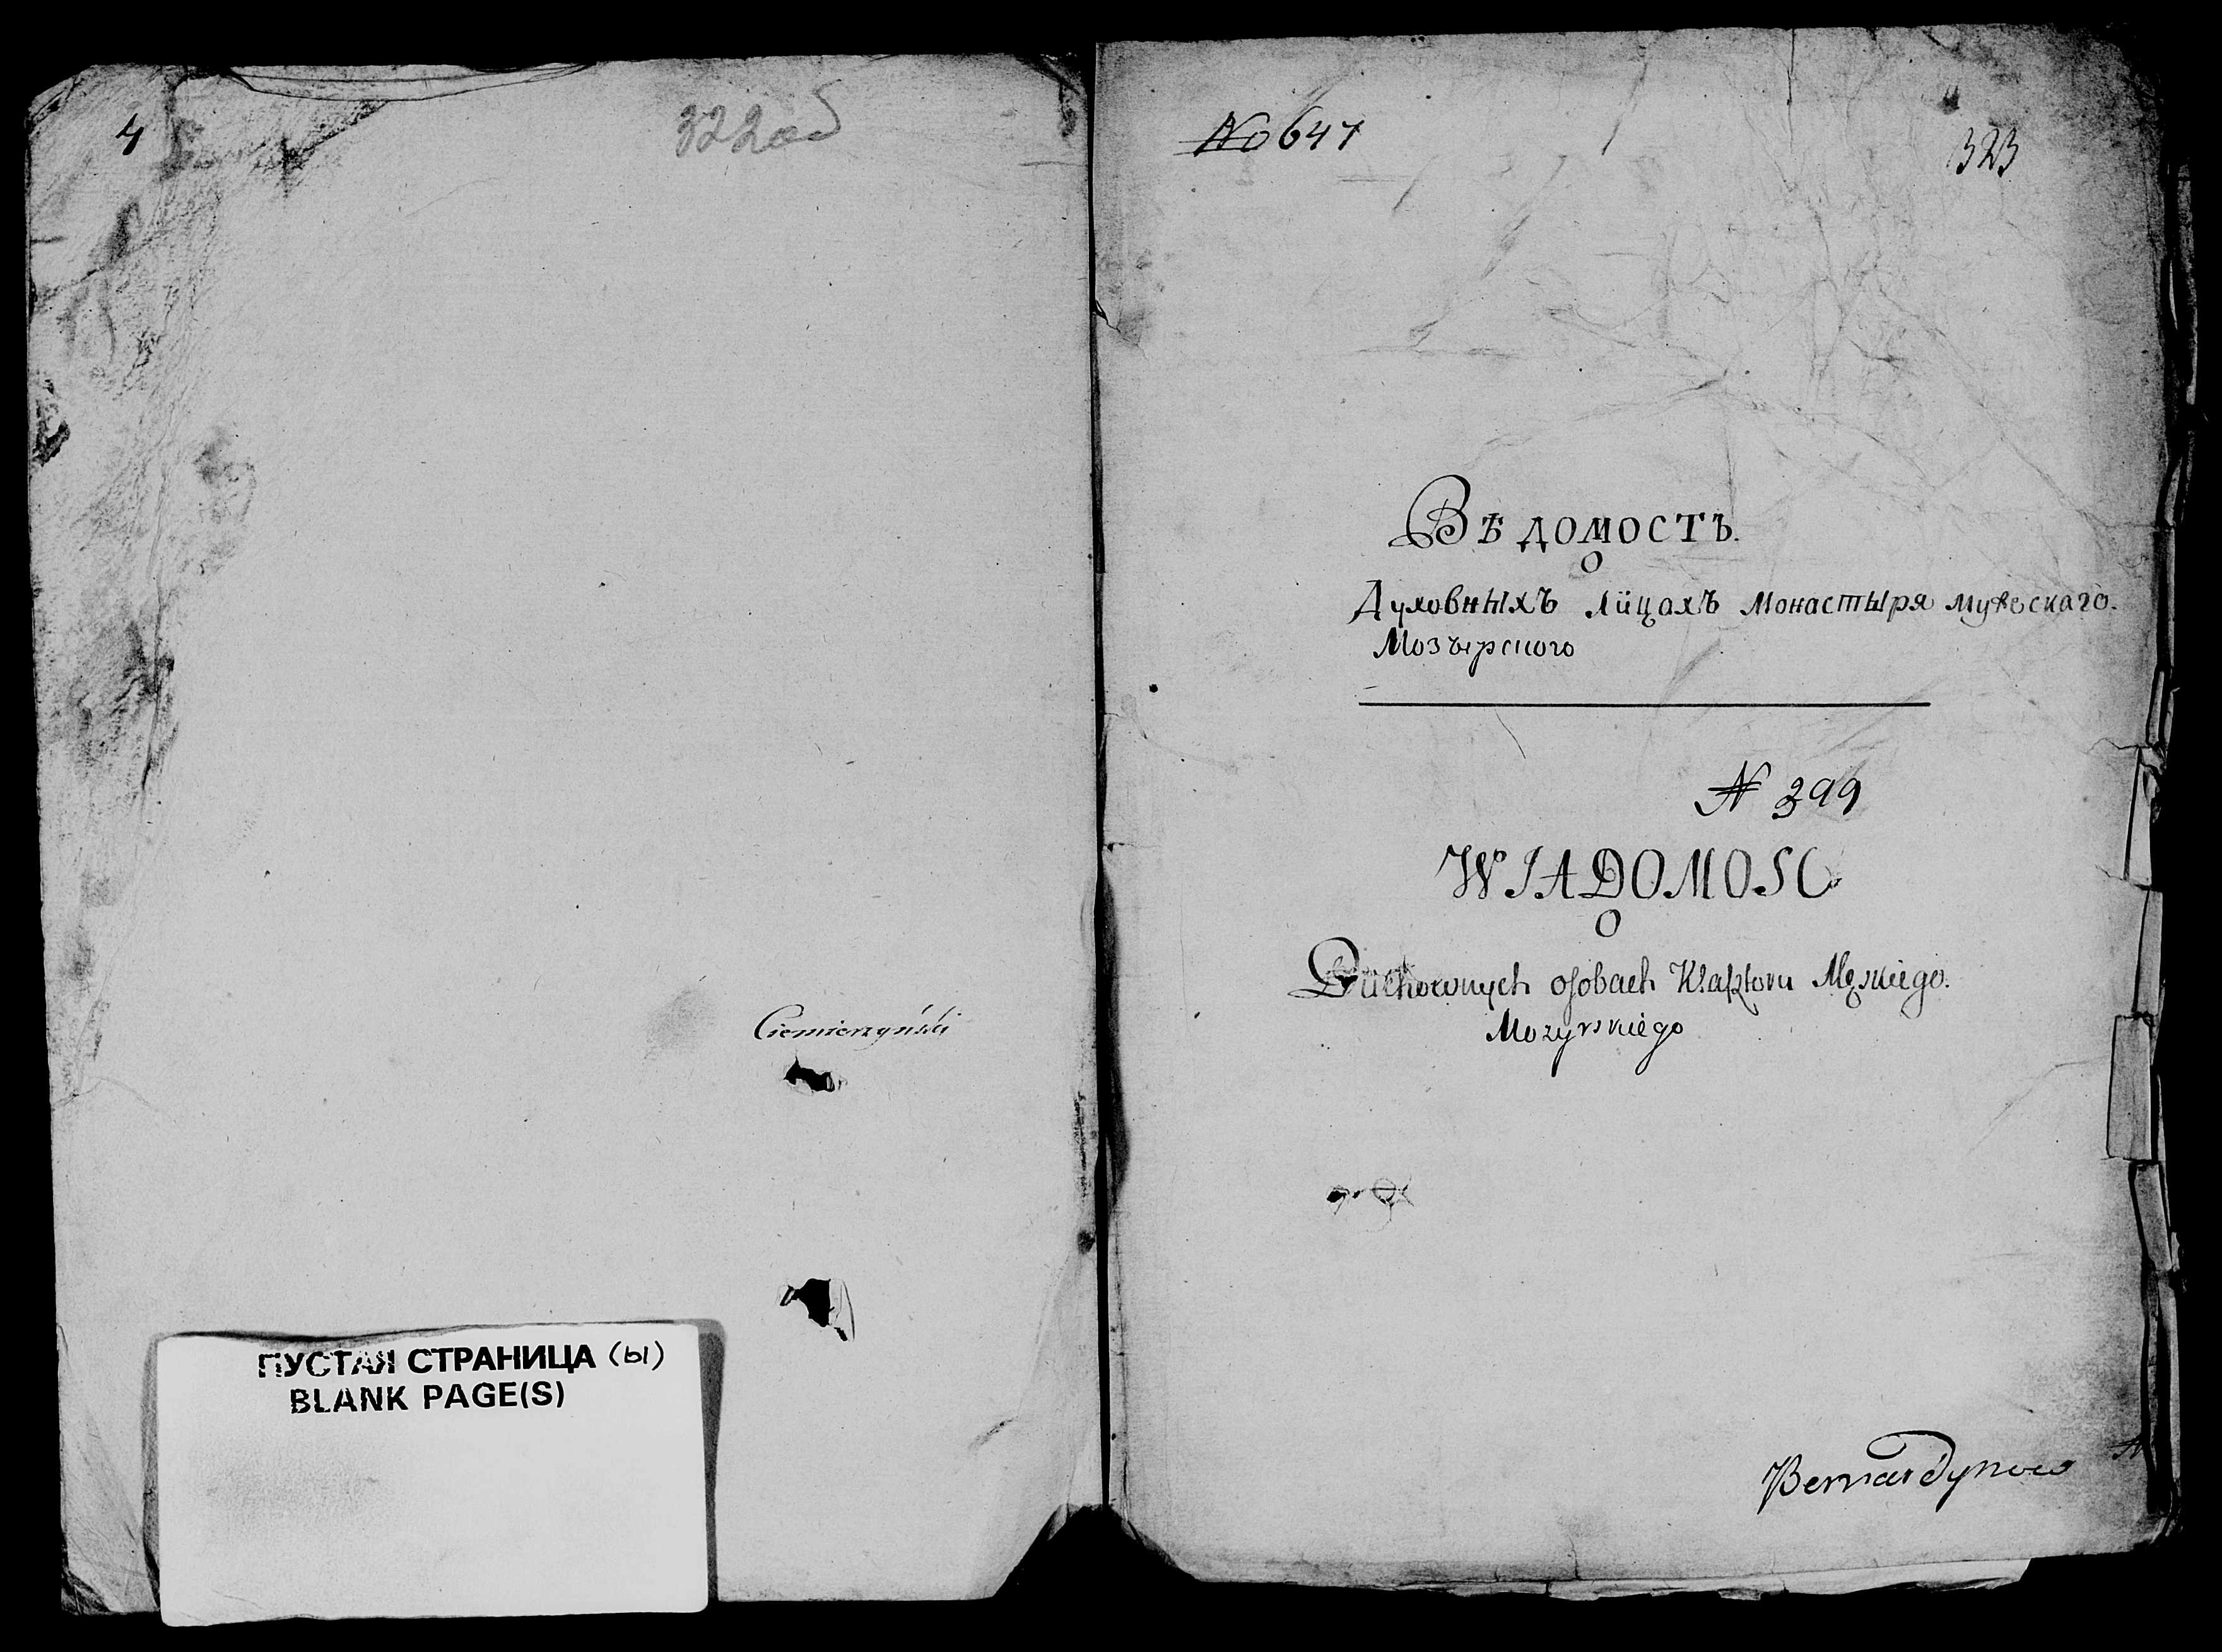 4
322об
Ciemierzyński
ПУСТАЯ СТРАНИЦА (ы)
BLANK PAGE(S)
No 647
323
Вѣдомостъ.
О
Духовныхъ Лицахъ Монастыря мужескаго.
Мозырского
N 399
WIADOMOSC
O
Duchownych osobach Klasztoru Męskiego.
Mozyrskiego
Bernardynow